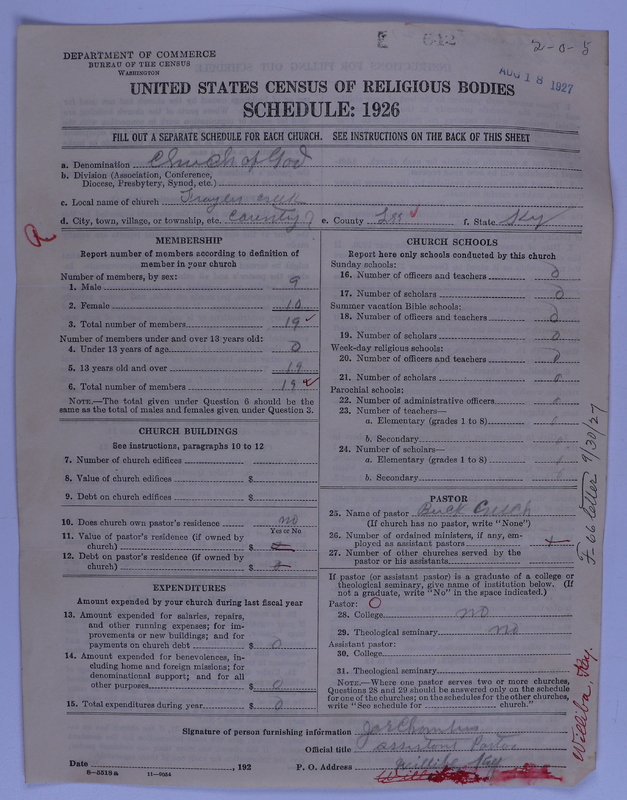 2-0-5
AUG 18 1927
DEPARTMENT OF COMMERCE
BUREAU OF THE CENSUS
WASHINGTON
UNITED STATES CENSUS OF RELIGIOUS BODIES
SCHEDULE: 1926
FILL OUT A SEPARATE SCHEDULE FOR EACH CHURCH. SEE INSTRUCTIONS ON THE BACK OF THIS SHEET
a. Denomination Church of God
b. Division (Association, Conference, Diocese, Presbytery, Synod, etc.)
c. Local name of church Creek
d. City, town, village, or township, etc. Country e. County Lee f. State Ky
R
MEMBERSHIP
Report number of members according to definition of member in your church
Number of members, by sex:
1. Male 9
2. Female 10
3. Total number of members 19
Number of members under and over 13 years old:
4. Under 13 years of age 0
5. 13 years old and over 19
6. Total number of members 19
NOTE.—The total given under Question 6 should be the same as the total of males and females given under Question 3.
CHURCH BUILDINGS
See instructions, paragraphs 10 to 12
7. Number of church edifices
8. Value of church edifices $
9. Debt on church edifices $
10. Does church own pastor's residence no
Yes or No
11. Value of pastor's residence (if owned by church) $
12. Debt on pastor's residence (if owned by church) $
EXPENDITURES
Amount expended by your church during last fiscal year
13. Amount expended for salaries, repairs, and other running expenses; for improvements or new buildings; and for payments on church debt $ 0
14. Amount expended for benevolences, including home and foreign missions; for denominational support; and for all other purposes $ 0
15. Total expenditures during year $ 0
CHURCH SCHOOLS
Report here only schools conducted by this church
Sunday schools:
16. Number of officers and teachers 0
17. Number of scholars 0
Summer vacation Bible schools:
18. Number of officers and teachers 0
19. Number of scholars 0
Week-day religious schools:
20. Number of officers and teachers 0
21. Number of scholars 0
Parochial schools:
22. Number of administrative officers 0
23. Number of teachers—
a. Elementary (grades 1 to 8)
b. Secondary
24. Number of scholars—
a. Elementary (grades 1 to 8)
b. Secondary
PASTOR
25. Name of pastor Buck Creech
(If church has no pastor, write "None")
26. Number of ordained ministers, if any, employed as assistant pastors
27. Number of other churches served by the pastor or his assistants
If pastor (or assistant pastor) is a graduate of a college or theological seminary, give name of institution below. (If not a graduate, write "No" in the space indicated.)
Pastor: O
28. College no
29. Theological seminary no
Assistant pastor:
30. College
31. Theological seminary
NOTE.—Where one pastor serves two or more churches, Questions 28 and 29 should be answered only on the schedule for one of the churches; on the schedules for the other churches, write "See schedule for church."
Signature of person furnishing information Joe Chambers
Official title assistant Pastor
Date , 192 P. O. Address Williba Ky
8-5518a 11-9034
F-66 letter 9/30/27
Williba, Ky.